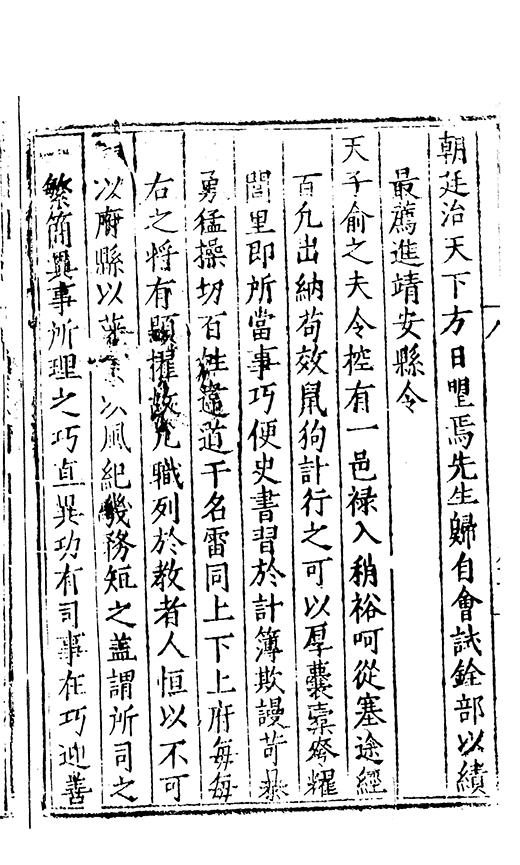 朝廷治天下方日聖焉先生歸自會試銓部以績
最薦進靖安縣令
天子俞之夫令控有一邑祿入稍裕呵從塞途經
百凡出納苟效鼠狗計行之可以厚囊橐齊耀
閭里即所當事巧便史書習於計簿欺謾苛暴
勇猛操切百姓違道干名雷同上下上府每每
右之將有顯擢故凡職列於教者人恒以不可
以府縣以 以風紀幾務短之蓋謂所司之
繁簡異事所理之巧直異功有司事在巧迎善